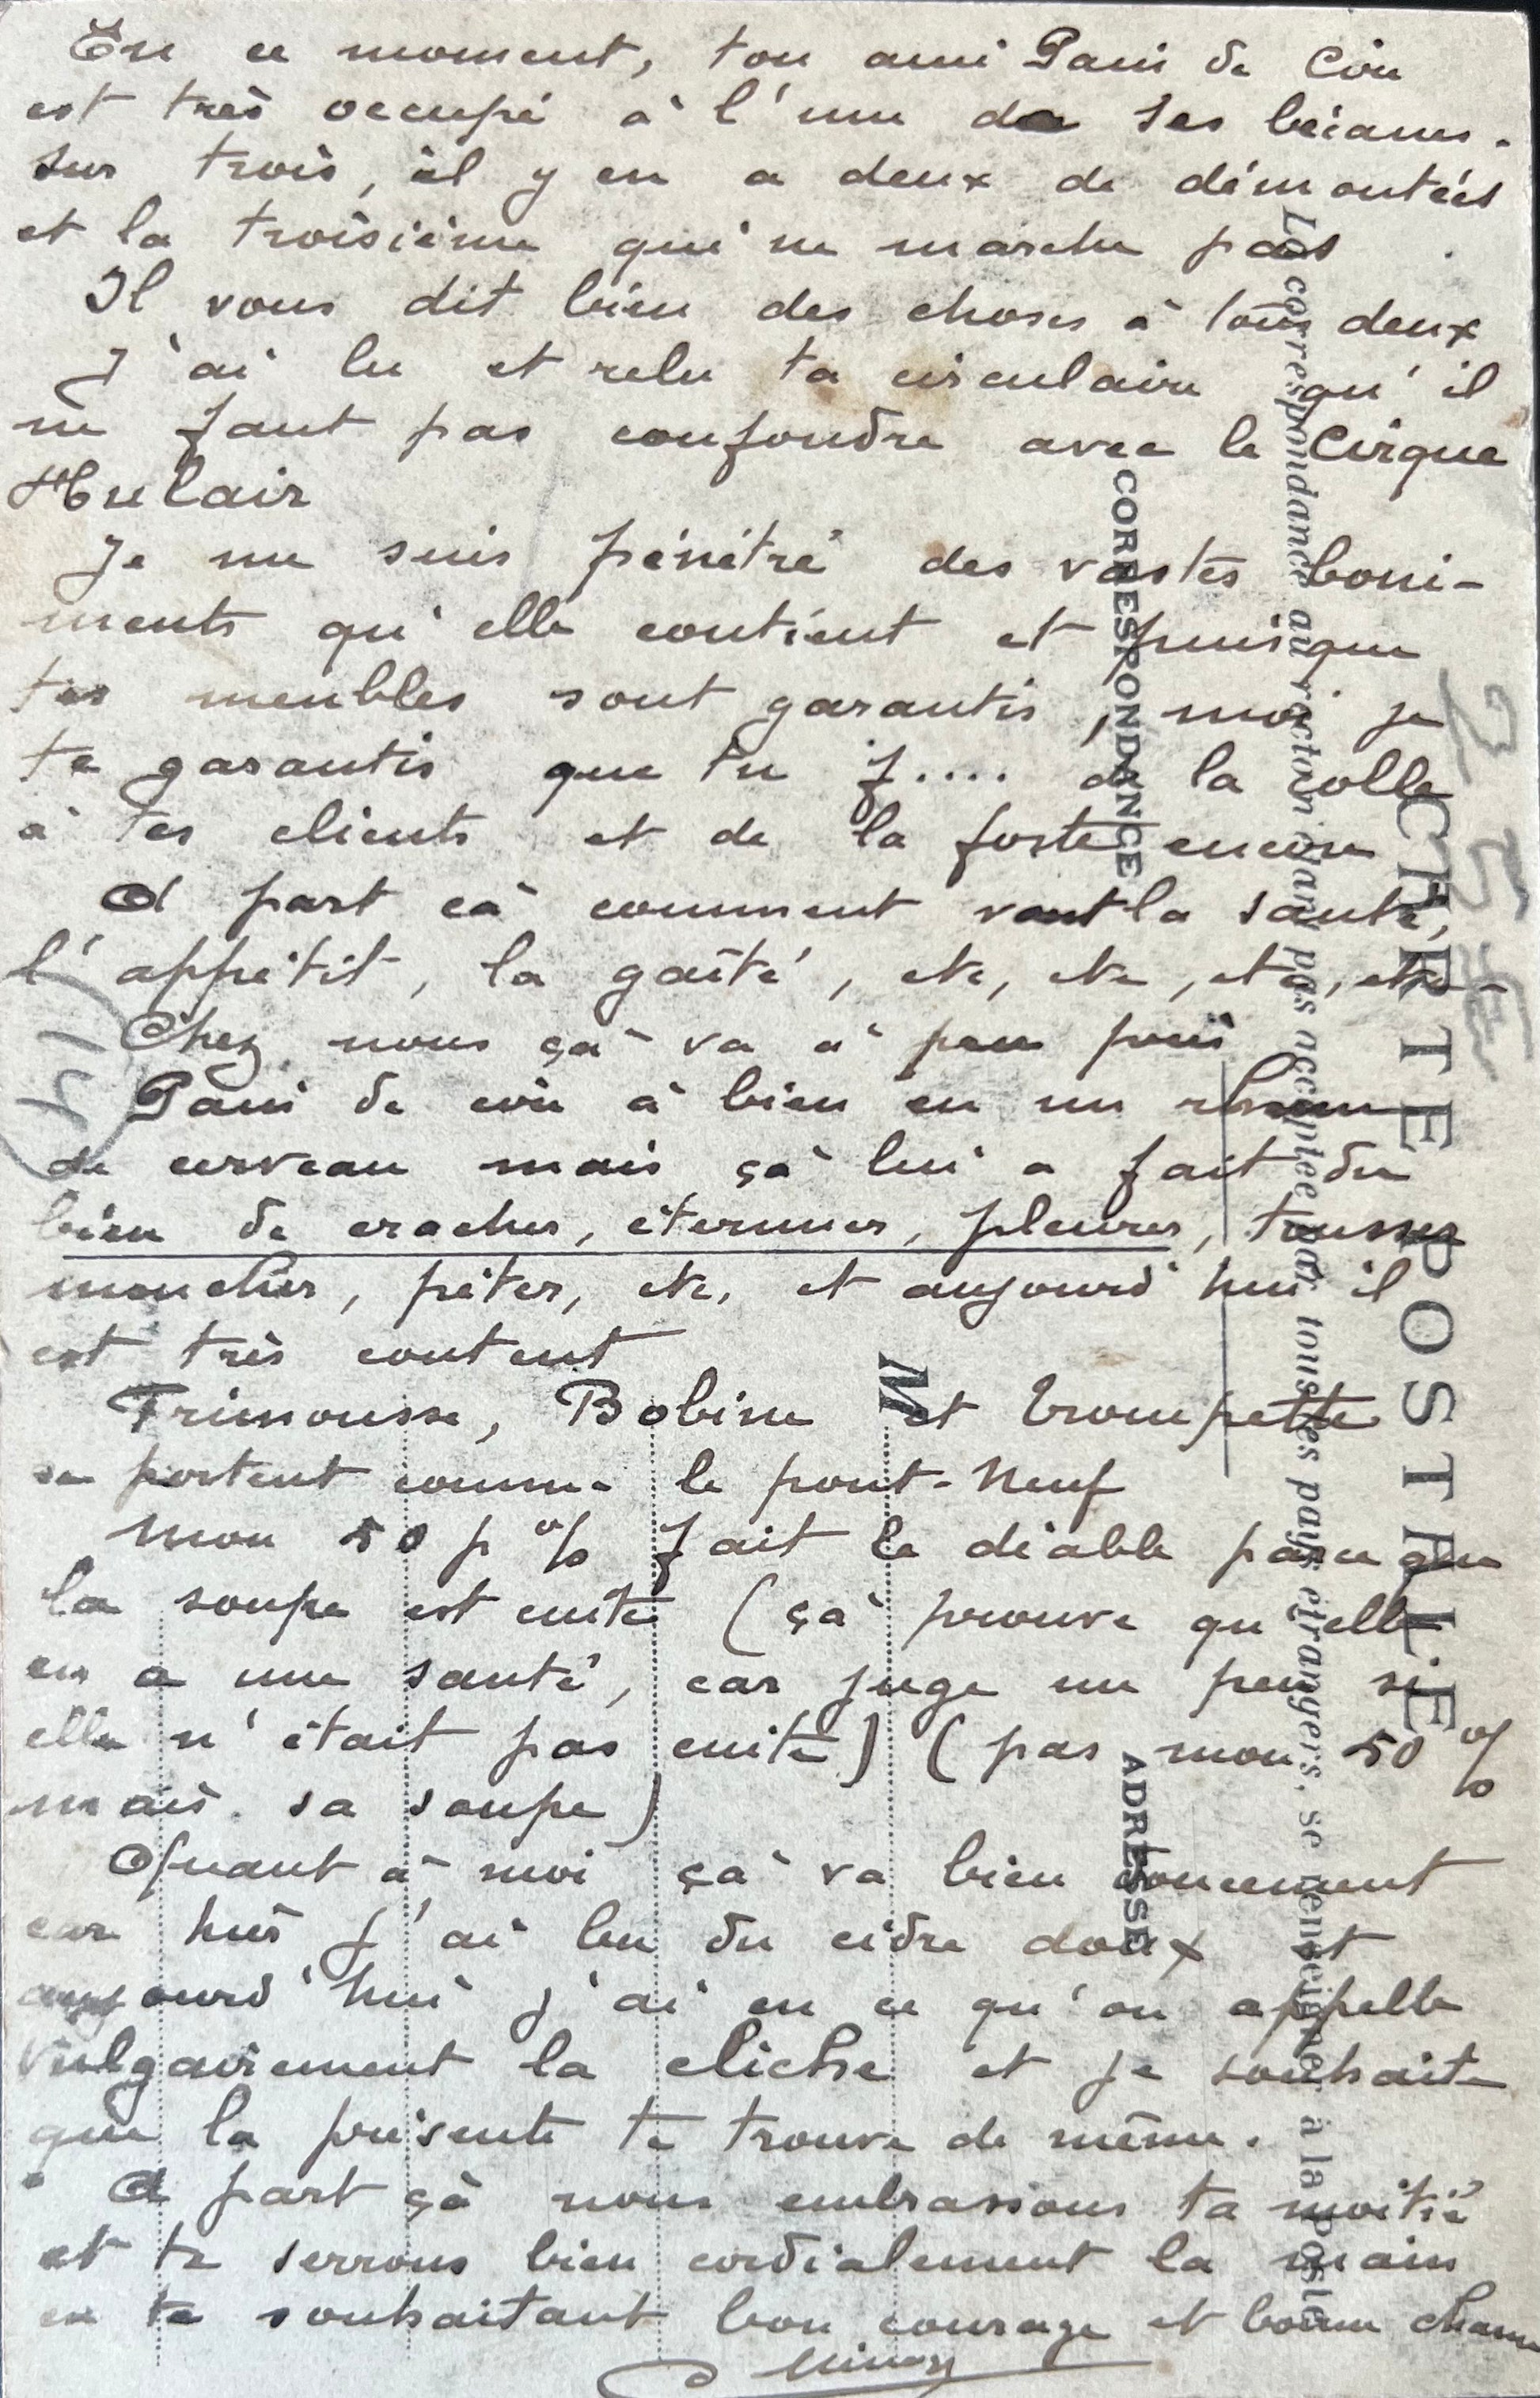 En ce moment, ton ami Pani de Cou
est très occupé à l'une de ses bécanes.
Sur trois, il y en a deux de démontées
et la troisième qui ne marche pas
Il vous dit bien des choses à tous deux
J'ai lu et relu ta circulaire qu'il
ne faut pas confondre avec le Cirque
Hulair
Je me suis pénétré des vastes boni-
ments qu'elle contient et puisque
tes meubles sont garantis, moi je
te garantis que tu f.... de la colle
à tes clients et de la forte encore
A part çà comment vont la santé,
l'appétit, la gaîté, etc, etc, etc, etc
Chez nous çà va à peu près
Pani de cou à bien eu un rhume
de cerveau mais çà lui a fait du
bien de cracher, éternuer, pleurer, tousser
moucher, péter, etc, et aujourd'hui il
est très content
Frimousse, Bobine et Trompette
se portent comme le pont-Neuf
Mon 50 p % fait le diable parce que
la soupe est cuite (çà prouve qu'elle
en a une santé, car juge un peu si
elle n'était pas cuite) (pas mon 50 %
mais sa soupe)
Quant à moi çà va bien doucement
car hier j'ai bu du cidre doux et
aujourd'hui j'ai eu ce qu'on appelle
vulgairement la cliche et je souhaite
que la présente te trouve de même.
A part çà nous embrassons ta moitié
et te serrons bien cordialement la main
en te souhaitant bon courage et bonne chance
CARTE POSTALE
La correspondance au recto n'étant pas acceptée par tous les pays étrangers, se renseigner à la Poste
CORRESPONDANCE
ADRESSE
M